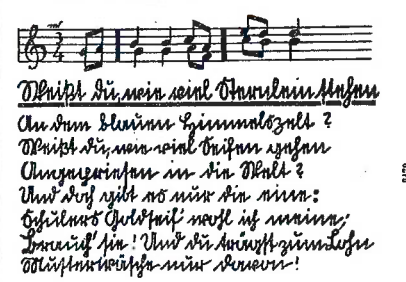 Weißt du, wie viel Sternlein stehen
An dem blauen Himmelszelt?
Weißt du, wie viel Seifen gehen
Angepriesen in die Welt?
Und doch gibt es nur die eine:
Schülers Goldseif' wohl ich meine;
Brauch' sie! Und du trägst zum Lohn
Musterwäsche nur davon!